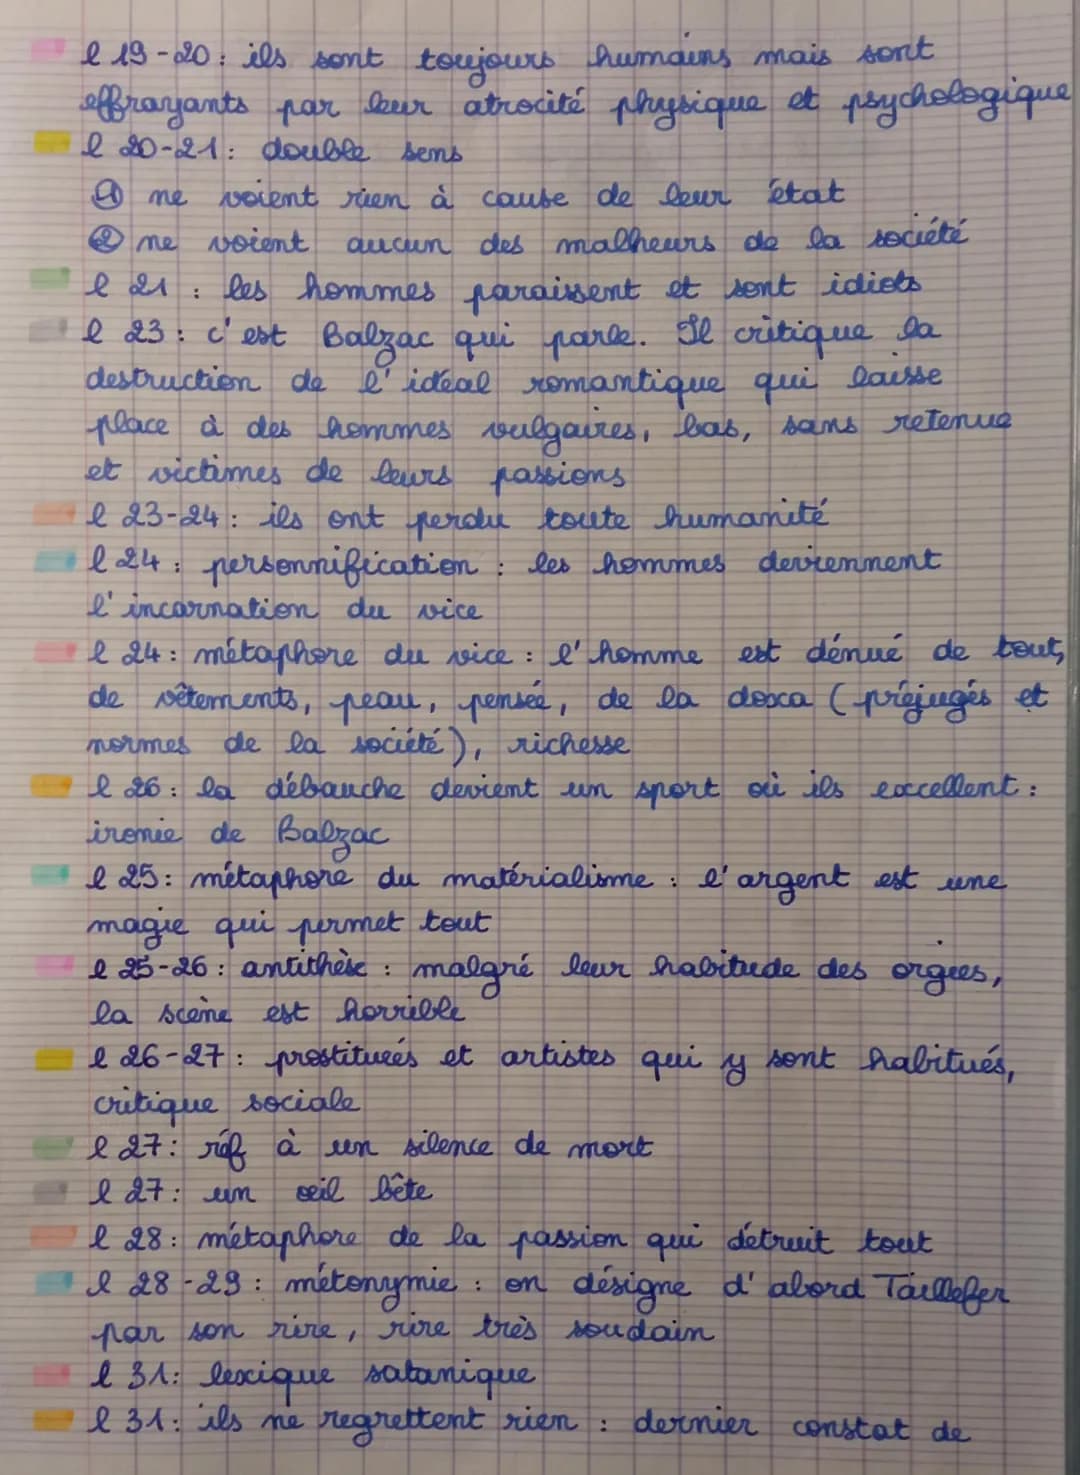 l 19-20 : ils sont toujours humains mais sont
effrayants par leur atrocité physique et psychologique
l 20-21 : double sens
① ne voient rien à cause de leur état
② ne voient aucun des malheurs de la société
l 21 : les hommes paraissent et sont idiots
l 23 : c'est Balzac qui parle. Il critique la
destruction de l'idéal romantique qui laisse
place à des hommes vulgaires, bas, sans retenue
et victimes de leurs passions
l 23-24 : ils ont perdu toute humanité
l 24 : personnification : les hommes deviennent
l'incarnation du vice
l 24 : métaphore du vice : l'homme est dénué de tout,
de vêtements, peau, pensée, de la doxa (préjugés et
normes de la société), richesse
l 26 : la débauche devient un sport où ils excellent :
ironie de Balzac
l 25 : métaphore du matérialisme : l'argent est une
magie qui permet tout
l 25-26 : antithèse : malgré leur habitude des orgies,
la scène est horrible
l 26-27 : prostituées et artistes qui y sont habitués,
critique sociale
l 27 : réf à un silence de mort
l 27 : un œil bête
l 28 : métaphore de la passion qui détruit tout
l 28-29 : métonymie : on désigne d'abord Taillefer
par son rire, rire très soudain
l 31 : lexique satanique
l 31 : ils ne regrettent rien : dernier constat de